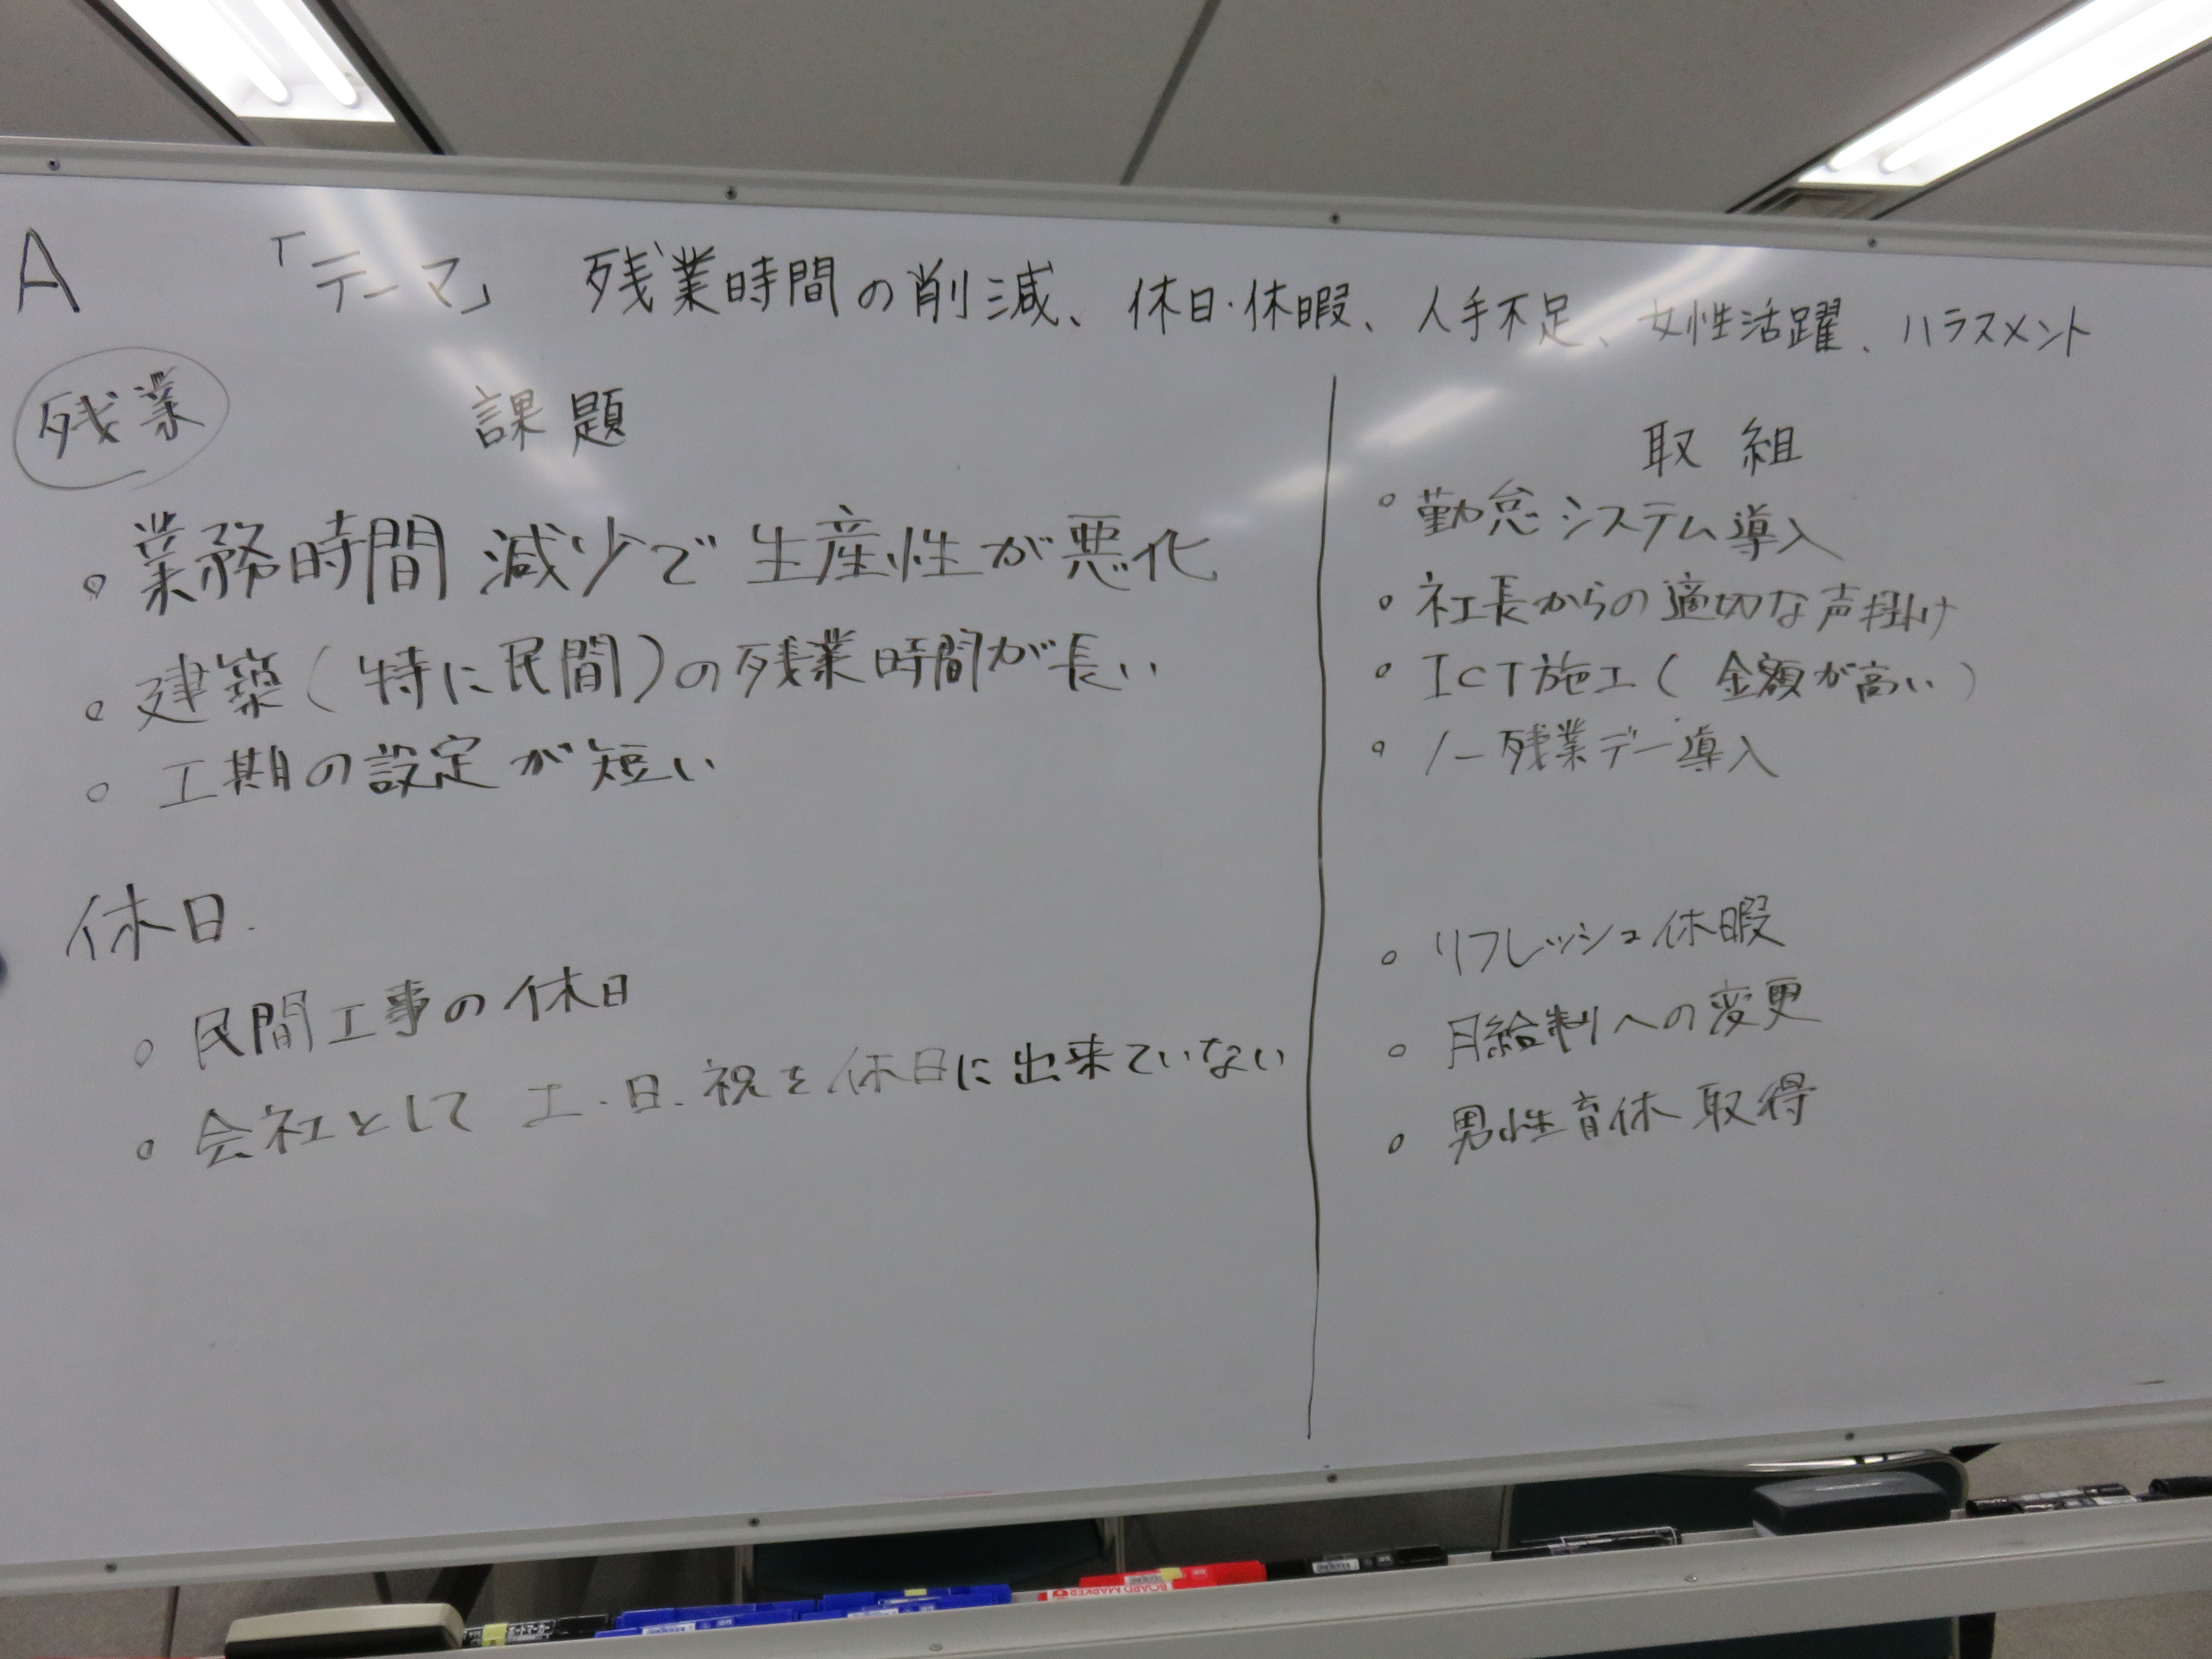 A 「テーマ」 残業時間の削減、休日・休暇、人手不足、女性活躍、ハラスメント
残業 課題
・業務時間 減少で生産性が悪化
・建築(特に民間)の残業時間が長い
・工期の設定が短い
休日.
・民間工事の休日
・会社として 土・日・祝を休日に出来ていない
取組
・勤怠システム導入
・社長からの適切な声掛け
・ICT施工(金額が高い)
・ノー残業デー導入
・リフレッシュ休暇
・月給制への変更
・男性育休取得
ボードマーカー
BOARD MARKER